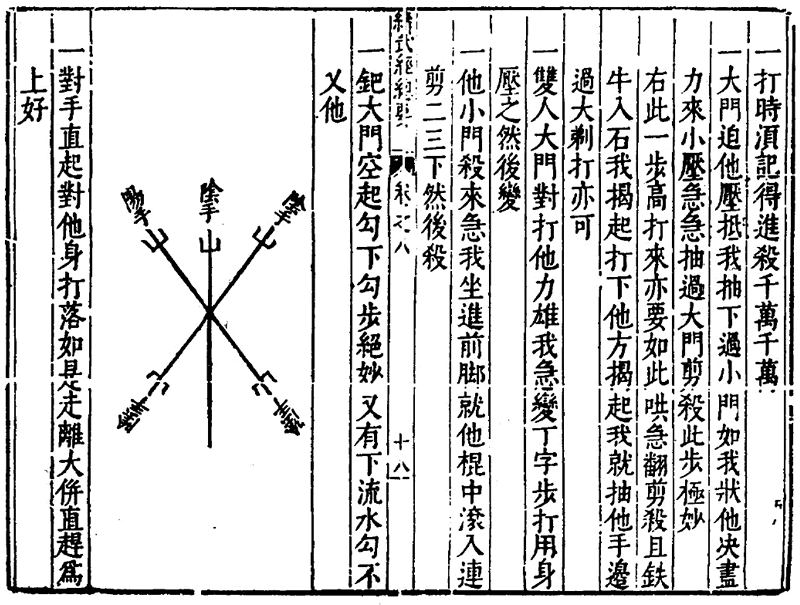 一打時須記得進殺千萬千萬
一大門迫他壓抵我抽下過小門如我狀他决盡
力來小壓急急抽過大門剪殺此步極妙
右此一步高打來亦要如此哄急翻剪殺且鉄
牛入石我揭起打下他方揭起我就抽他手邊
過大剃打亦可
一雙人大門對打他力雄我急變丁字步打用身
壓之然後變
一他小門殺來急我坐進前脚就他棍中滚入連
剪二三下然後殺
經武經總要
卷之八
十八
一鈀大門空起勾下勾步絕妙又有下流水勾不
乂他
陰手
陰手
陽手
一對手直起對他身打落如是走離大併直趕爲
上好